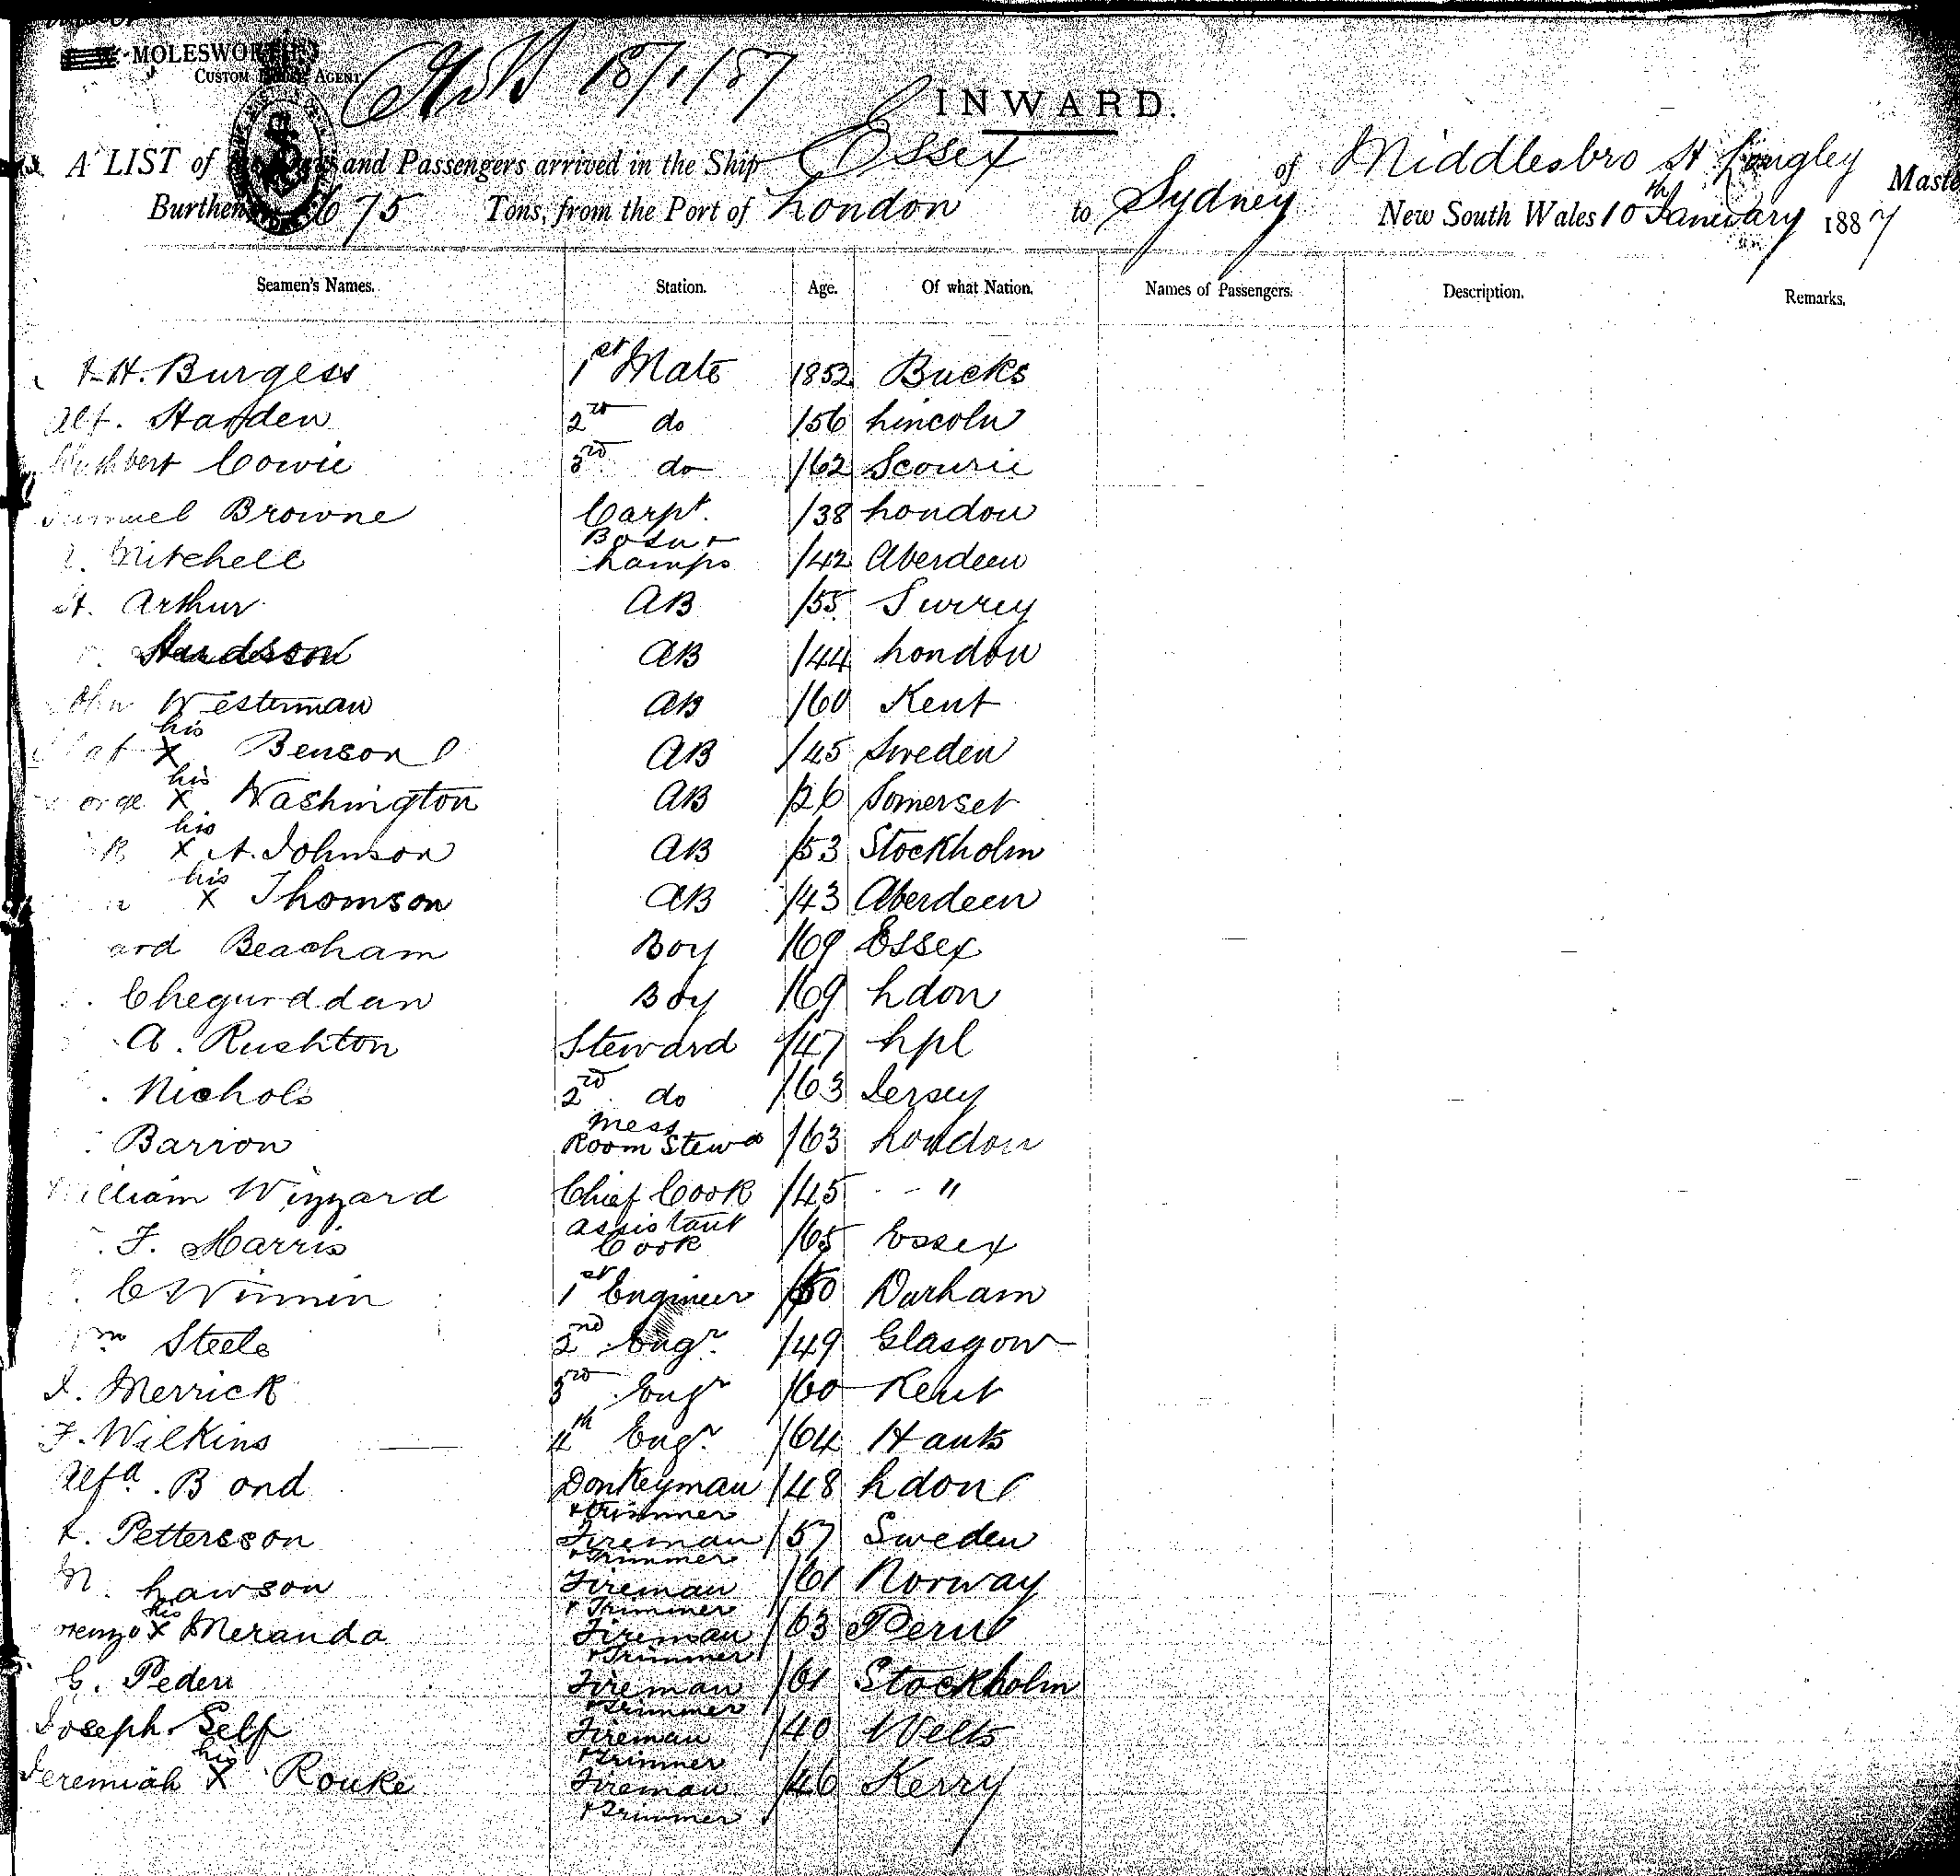 MOLESWORTH
CUSTOM HOUSE AGENT
18/1/87
INWARD.
A LIST of and Passengers arrived in the Ship Essex of Middlesbro H Langley Maste
Burthen 675 Tons, from the Port of London to Sydney New South Wales 10th January 1887
Seamen's Names. Station. Age. Of what Nation. Names of Passengers. Description. Remarks.
H. Burgess 1st Mate 1852 Bucks
Alf. Harden 2nd do /56 Lincoln
Cuthbert Cowie 3rd do /62 Scourie
Samuel Browne Carpt. /38 London
Mitchell Bosun + Lamps /42 Aberdeen
H. Arthur AB /55 Surrey
AB /44 London
John Westerman AB /60 Kent
his
X Benson AB /45 Sweden
his
orge X Washington AB /26 Somerset
his
X A. Johnson AB /53 Stockholm
his
X Thomson AB /43 Aberdeen
ard Beacham Boy /69 Essex
Chegwiddan Boy /69 Ldon
A. Rushton Steward /47 Lpl
Nichols 2nd do /63 Jersey
Barron Mess Room Stewd /63 London
William Wizzard Chief Cook /45 "
F. Harris Assistant Cook /65 Essex
C Winnin 1st Engineer /50 Durham
Wm Steele 2nd Engr. /49 Glasgow
J. Merrick 3rd Engr /60 Kent
F. Wilkins 4th Engr. /64 Hants
Alfd. Bond Donkeyman + Trimmer /48 Ldon
Pettersson Fireman + Trimmer /57 Sweden
N. Lawson Fireman + Trimmer /61 Norway
his
renzo X Meranda Fireman + Trimmer /63 Peru
G. Peden Fireman + Trimmer /61 Stockholm
Joseph Self Fireman + Trimmer /40 Wells
his
Jeremiah X Rouke Fireman + Trimmer /46 Kerry